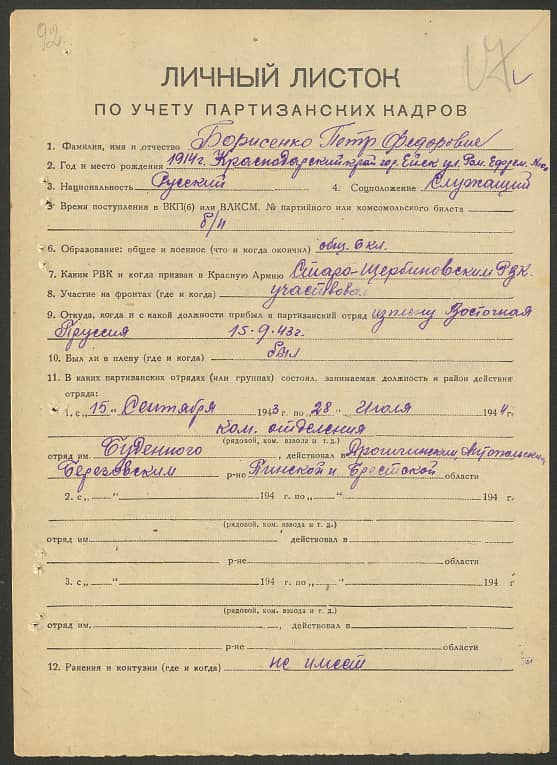 92
ЛИЧНЫЙ ЛИСТОК
ПО УЧЕТУ ПАРТИЗАНСКИХ КАДРОВ
1. Фамилия, имя и отчество Борисенко Петр Федорович
2. Год и место рождения 1914 г. Краснодарский край гор. Ейск ул.
3. Национальность Русский 4. Соцположение Служащий
5. Время поступления в ВКП(б) или ВЛКСМ, № партийного или комсомольского билета
б/п
6. Образование: общее и военное (что и когда окончил) общ. 6 кл.
7. Каким РВК и когда призван в Красную Армию Старо-Щербиновским РВК.
8. Участие на фронтах (где и когда) участвовал
9. Откуда, когда и с какой должности прибыл в партизанский отряд из плену Восточная
Пруссия 15.9.43 г.
10. Был ли в плену (где и когда) был
11. В каких партизанских отрядах (или группах) состоял, занимаемая должность и район действия
отряда:
1. с „15" Сентября 1943 г. по „28" Июля 1944 г.
ком. отделения
(рядовой, ком. взвода и т. д.)
отряд им. Буденного, действовал в Дрогичинским, Антопольским
Березовским р-не Пинской и Брестской области
2. с „ " 194 г. по „ " 194 г
(рядовой, ком. взвода и т. д.)
отряд им. действовал в
р-не области
3. с „ " 194 г. по „ " 194 г
(рядовой, ком. взвода и т. д.)
отряд им. , действовал в
р-не области
12. Ранения и контузии (где и когда) не имеет